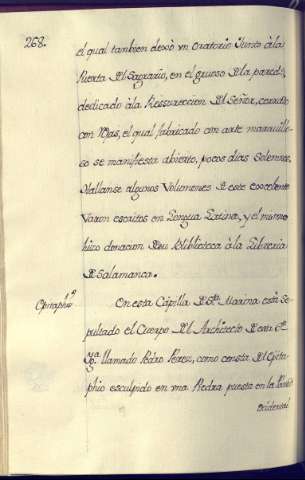 268.
el qual tambien dexò vn Oratorio Junto àla
Puerta del Sagrario, en el grueso dela pared,
dedicado àla Ressurreccion del Señor, cerrado
con Rejas, el qual fabricado con arte maravillo-
so se manifiesta abierto, pocos dias Solemnes.
Hallanse algunos Volumenes de este excelente
Varon escritos en Lengua Latina, y el mismo
hizo donacion de su Bibliotheca à la Libreria
de Salamanca.
Epitaphio
En esta Capilla de Sta. Marina està Se-
pultado el Cuerpo del Architecto de esta
Yga. llamado Pedro Perez, como consta del Epita-
phio esculpido en vna Piedra puesta en la Pared
occidental